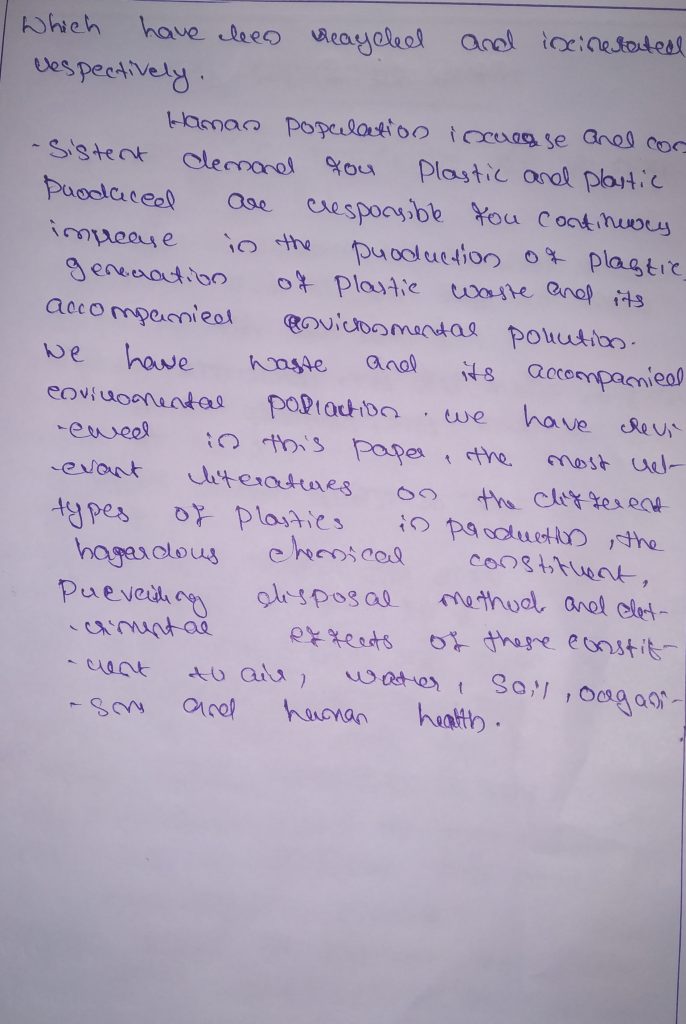 Which have been recycled and incinerated
respectively.
Human population increase and con
-sistent demand for plastic and plastic
produced are responsible for continuous
increase in the production of plastic
generation of plastic waste and its
accompanied environmental pollution.
We have waste and its accompanied
environmental pollution. we have revi-
-ewed in this paper, the most rel-
-evant literatures on the different
types of plastics in production, the
hagardous chemical constituent,
Prevailing disposal method and det-
-rimental effects of these constit-
-uent to air, water, soil, organi-
-sm and human health.